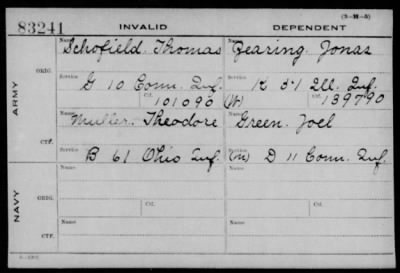 (3-M-5)
83241 INVALID DEPENDENT
Name Name
Schofield Thomas Fearing Jonas
ORIG. Service Service
G 10 Conn. Inf. K 51 Ill. Inf.
Ctf. 101090 (W) 139790
ARMY
Name Name
Muller Theodore Green Joel
CTF. Service Service
B 61 Ohio Inf. (M) D 11 Conn. Inf.
Name Name
ORIG.
Service Ctf. Service Ctf.
NAVY
Name Name
CTF.
Service Service